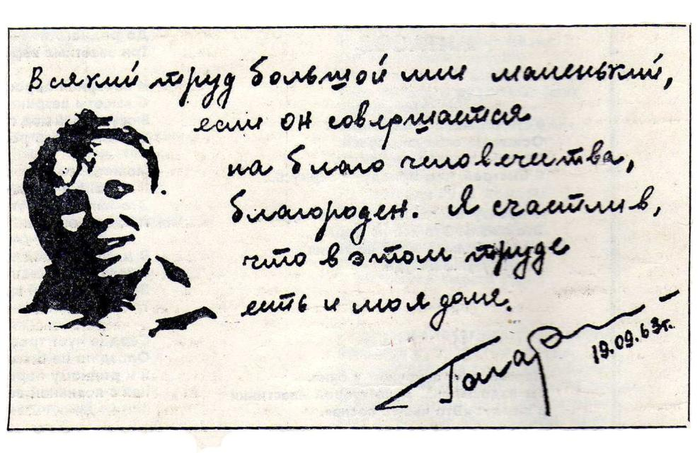 Всякий труд большой или маленький,
если он совершается
на благо человечества,
благороден. Я счастлив,
что в этом труде
есть и моя доля.
Гагарин
19.09.63г.